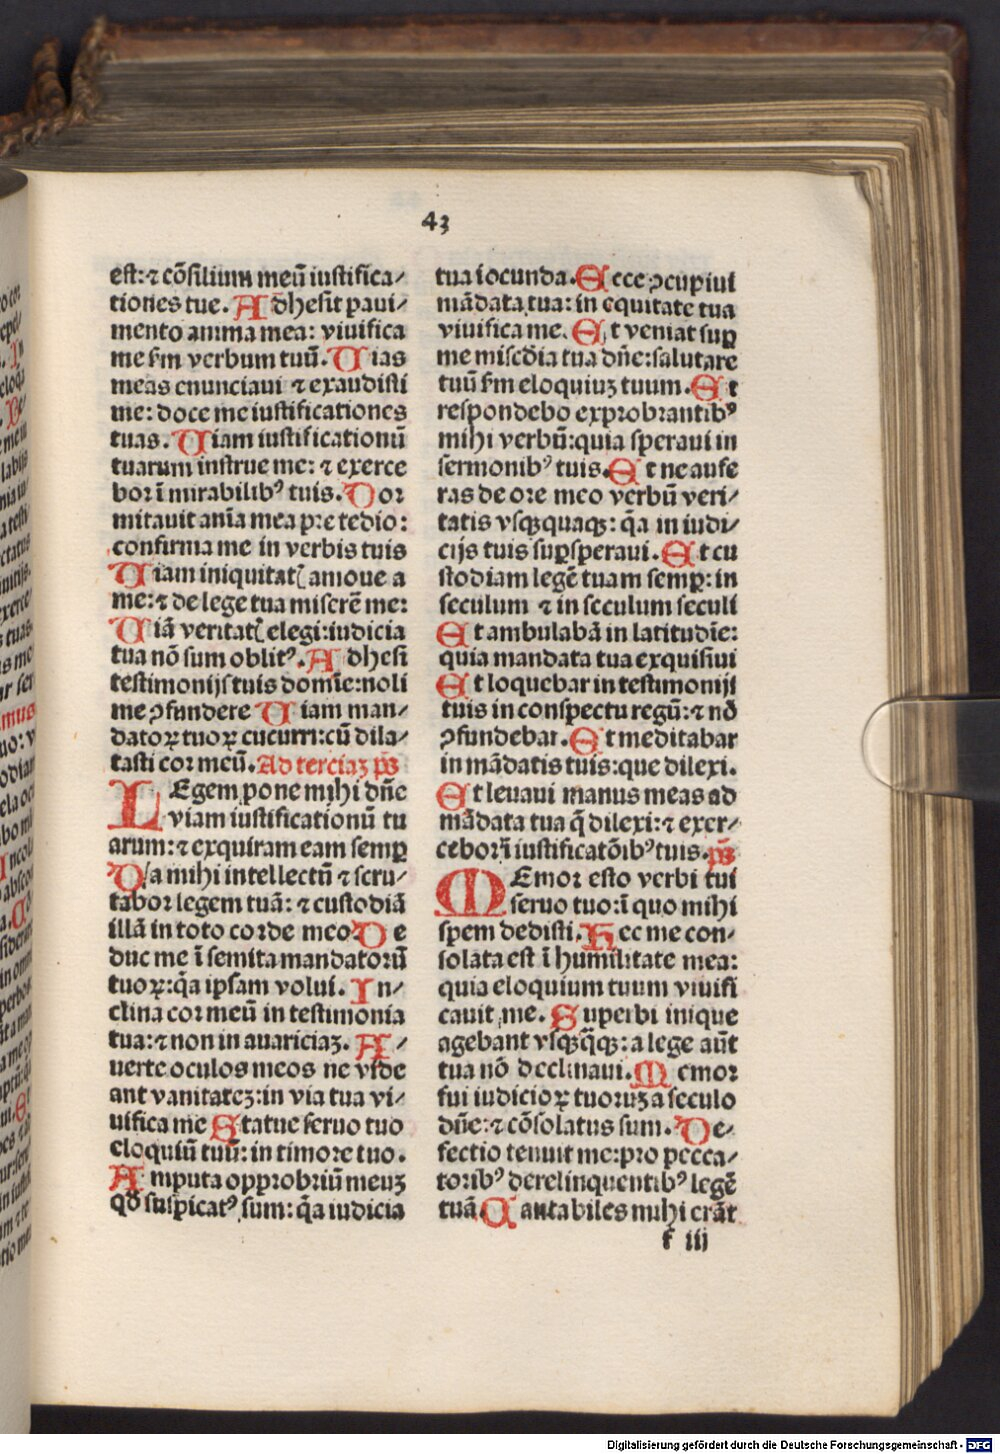 43
est:⁊ cõsilium meũ iustifica/
tiones tue. Adhesit paui/
mento anima mea: viuifica
me ẜm verbum tuũ. Uias
meas enunciaui ⁊ exaudisti
me: doce me iustificationes
tuas. Uiam iustificationũ
tuarum instrue me: ⁊ exerce
bor ĩ mirabilibꝰ tuis. Dor
mitauit aĩa mea pre tedio:
confirma me in verbis tuis
Uiam iniquitatꝭ amoue a
me:⁊ de lege tua miserẽ me:
Uiã veritatꝭ elegi:iudicia
tua nõ sum oblitꝰ. Adhesi
testimonijs tuis domĩe:noli
me ꝯfundere Uiam man/
datoꝝ tuoꝝ cucurri:cũ dila/
tasti cor meũ. Ad terciaꝫ p̃s
LEgem pone mihi dñe
viam iustificationũ tu
arum:⁊ exquiram eam semꝑ
Da mihi intellectũ ⁊ scru/
tabor legem tuã: ⁊ custodiã
illã in toto corde meo De
duc me ĩ semita mandatorũ
tuoꝝ:q̃a ipsam volui. In/
clina cor meũ in testimonia
tua:⁊ non in auariciaꝫ. A/
uerte oculos meos ne vide
ant vanitateꝫ: in via tua vi/
uifica me Statue seruo tuo
eloquiũ tuũ: in timore tuo.
Amputa opprobriũ meuꝫ
qđ suspicatꝰ sum: q̃a iudicia
tua iocunda. Ecce ꝯcupiui
mãdata tua: in equitate tua
viuifica me. Et veniat suꝑ
me misc̃dia tua dñe:salutare
tuũ ẜm eloquiuꝫ tuum. Et
respondebo exprobrantibꝰ
mihi verbũ:quia speraui in
sermonibꝰ tuis. Et ne aufe
ras de ore meo verbũ veri/
tatis vsqꝫquaqꝫ: q̃a in iudi/
cijs tuis suꝑsperaui. Et cu
stodiam legẽ tuam semꝑ: in
seculum ⁊ in seculum seculi
Et ambulabã in latitudĩe:
quia mandata tua exquisiui
Et loquebar in testimonijs
tuis in conspectu regũ:⁊ nõ
ꝯfundebar. Et meditabar
in mãdatis tuis: que dilexi.
Et leuaui manus meas ad
mãdata tua q̃ dilexi:⁊ exer/
cebor ĩ iustificatõibꝰ tuis. p̃s
MEmor esto verbi tui
seruo tuo:ĩ quo mihi
spem dedisti. Hec me con/
solata est ĩ humilitate mea:
quia eloquium tuum viuifi
cauit me. Superbi inique
agebant vsqꝫq̃qꝫ: a lege aũt
tua nõ declinaui. Memor
fui iudicioꝝ tuoruꝫ a seculo
dñe:⁊ cõsolatus sum. De/
fectio tenuit me:pro pecca/
toribꝰ derelinquentibꝰ legẽ
tuã. Cantabiles mihi erãt
f iii
Digitalisierung gefördert durch die Deutsche Forschungsgemeinschaft - DFG